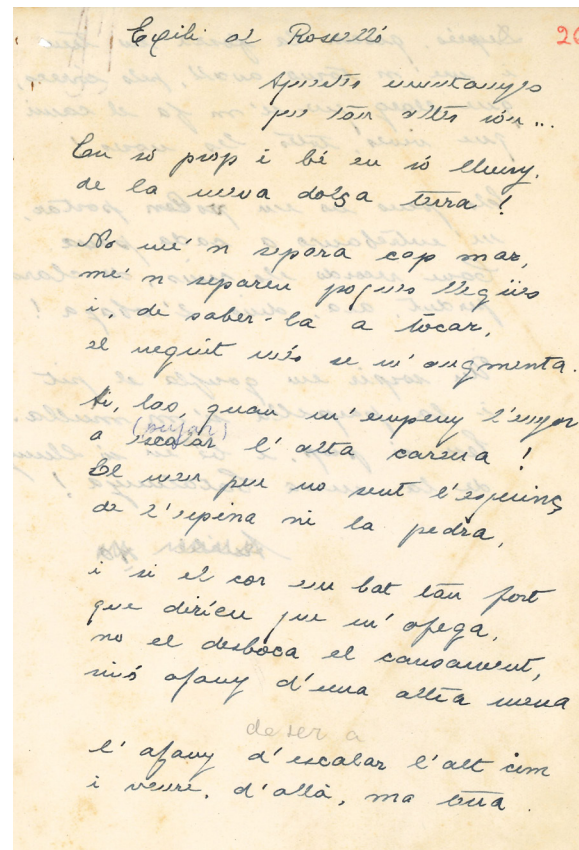 Exili al Rosselló
20
Aquestes muntanyes
que tan altes són...
Con só prop i bé en só lluny,
de la meva dolça terra!
No me'n separa cap mar,
me'n separen poques llegües
i, de saber-la a tocar,
el neguit més se m'augmenta.
Ai, las, quan m'empeny l'enyor
(pujar)
a escalar l'alta carena!
El meu peu no sent l'esquinç
de l'espina ni la pedra,
i si el cor em bat tan fort
que dirieu que m'ofega,
no el desboca el cansament,
sinó afany d'una altra mena
de ser a
l'afany d'escalar l'alt cim
i veure, d'allà, ma terra.